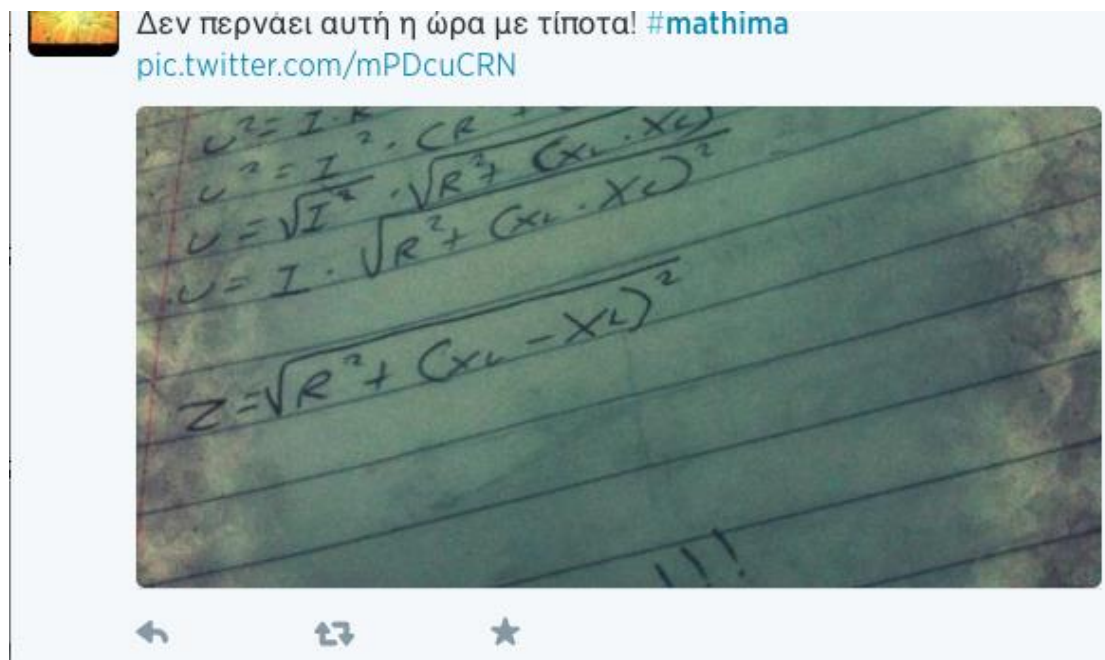 Δεν περνάει αυτή η ώρα με τίποτα! #mathima
pic.twitter.com/mPDcuCRN
U²= I · R
U²= I² · (R +
U = √I² · √R²+ (XL · XL)
U = I · √R²+ (XL · XL)²
Z=√R²+ (XL - XL)²
!!!